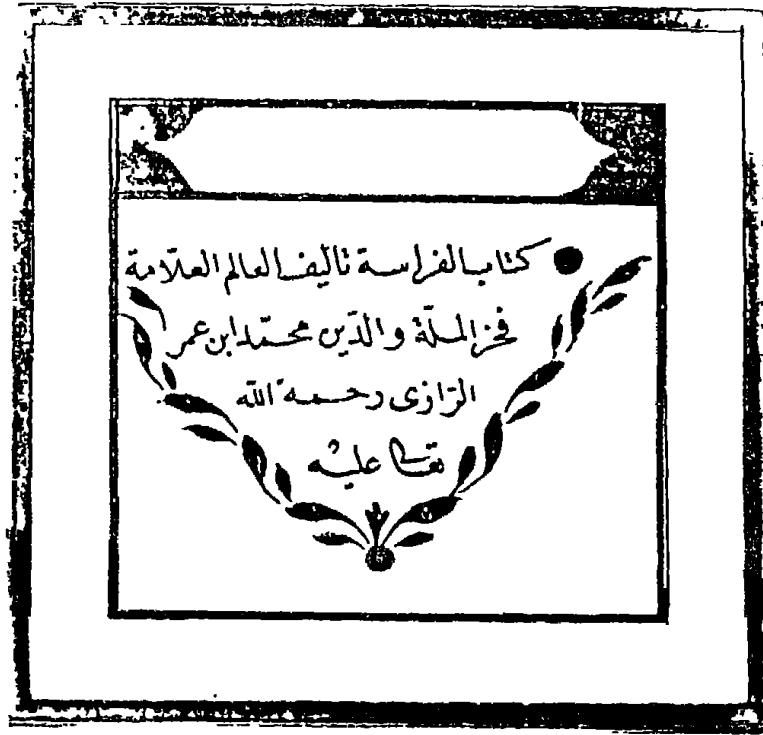 كتاب الفراسة تأليف العالم العلّامة
فخر الملّة والدّين محمّد ابن عمر
الرّازى رحمه الله
تعالى عليه